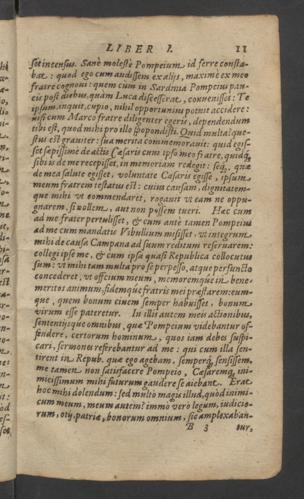 LIBER I. 11
set incensus. Sanè molestè Pompeium id ferre consta-
bat: quod ego cum audissem ex alijs, maximè ex meo
fratre cognoui: quem cum in Sardinia Pompeius pau-
cis post diebus, quàm Luca discesserat, conuenisset: Te
ipsum, inquit, cupio, nihil opportuniùs potuit accidere:
nisi cum Marco fratre diligenter egeris, dependendum
tibi est, quod mihi pro illo spopondisti. Quid multa? que-
stus est grauiter: sua merita commemorauit: quid egis-
set sæpissimè de actis Cæsaris cum ipso meo fratre, quidq́;
sibi is de me recepisset, in memoriam redegit: seq́;, quæ
de mea salute egisset, voluntate Cæsaris egisse, ipsum
meum fratrem testatus est: cuius causam, dignitatemm-
que mihi vt commendaret, rogauit vt eam ne oppu-
gnarem, si nollem, aut non possem tueri. Hæc cum
ad me frater pertulisset, & cum ante tamen Pompeius
ad me cum mandatis Vibullium misisset, vt integrum
mihi de causa Campana ad suum reditum reseruarem:
collegi ipse me, & cum ipsa quasi Republica collocutus
sum: vt mihi tam multa pro se perpesso, atque perfuncto
concederet, vt officium meum, memoremque in bene-
meritos animum, fidemque fratris mei præstarem: eum-
que, quem bonum ciuem semper habuisset, bonum
virum esse pateretur. In illis autem meis actionibus,
sententijsque omnibus, quæ Pompeium videbantur of-
fendere, certorum hominum, quos iam debes suspi-
cari, sermones referebantur ad me: qui cum illa sen-
tirent in Repub. quæ ego agebam, semperq́; sensissent,
me tamen non satisfacere Pompeio, Cæsaremq́; ini-
micissimum mihi futurum gaudere se aiebant. Erat
hoc mihi dolendum: sed multò magis illud, quòd inimi-
cum meum, meum autem? immo verò legum, iudicio-
rum, otij, patriæ, bonorum omnium, sic amplexaban-
B 3 tur,